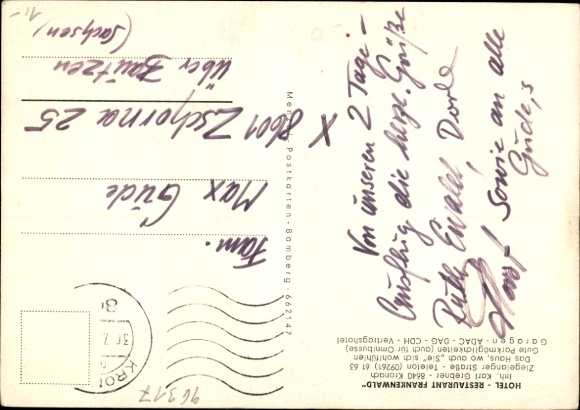 HOTEL - RESTAURANT FRANKENWALD"
Inh. Karl Grebner · 8640 Kronach
Ziegelanger Straße - Telefon (09261) 61 63
Das Haus, wo auch „Sie" sich wohlfühlen
Gute Parkmöglichkeiten (auch für Omnibusse)
Garagen - ADAC - DAG - CDH - Vertragshotel
Von unseren 2 Tage-
Ausflug die herzl. Grüße
Ruth, Ewald,
Horst sowie an alle
Güde,s
Postkarten - Bamberg - 662147
Fam.
Max Güde
X 8601 Zschorna 25
über Bautzen
(Sachsen)
KRON
96317
1,-